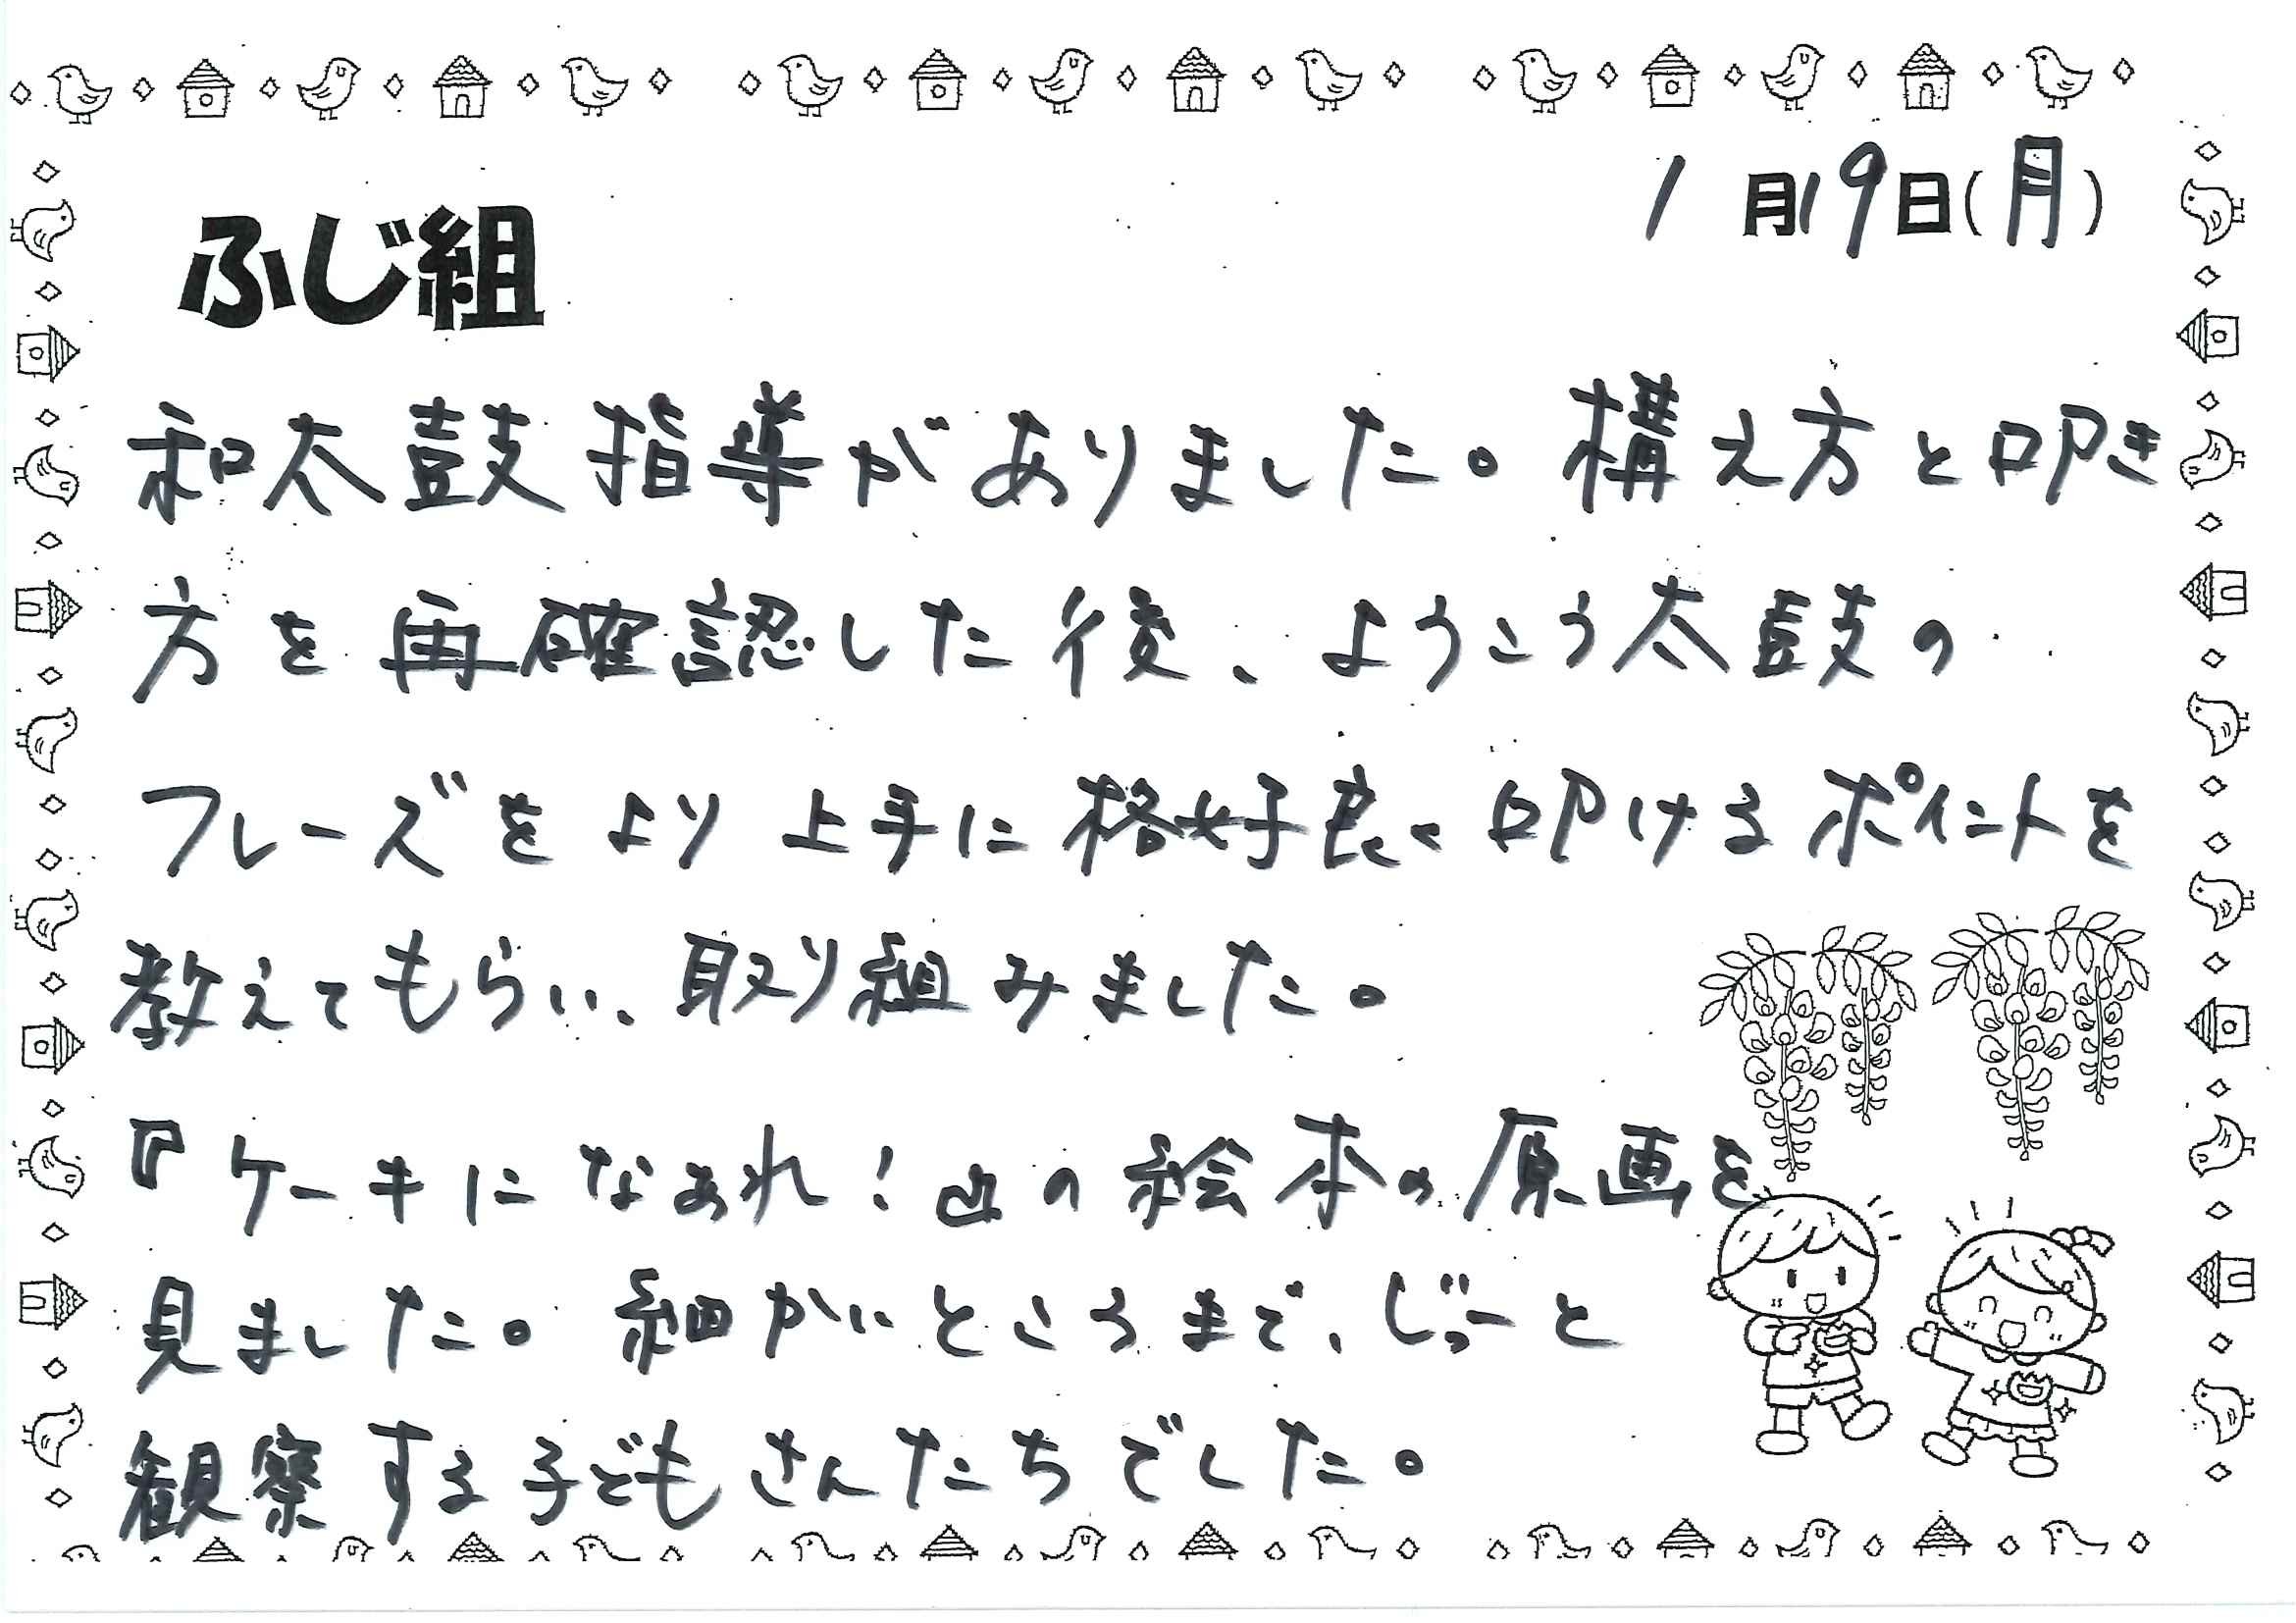 1月19日(月)
ふじ組
和太鼓指導がありました。構え方と叩き
方を再確認した後、ようこう太鼓の
フレーズをより上手に格好良く叩けるポイントを
教えてもらい、取り組みました。
『ケーキになあれ!』の絵本の原画を
見ました。細かいところまで、じっーと
観察する子どもさんたちでした。